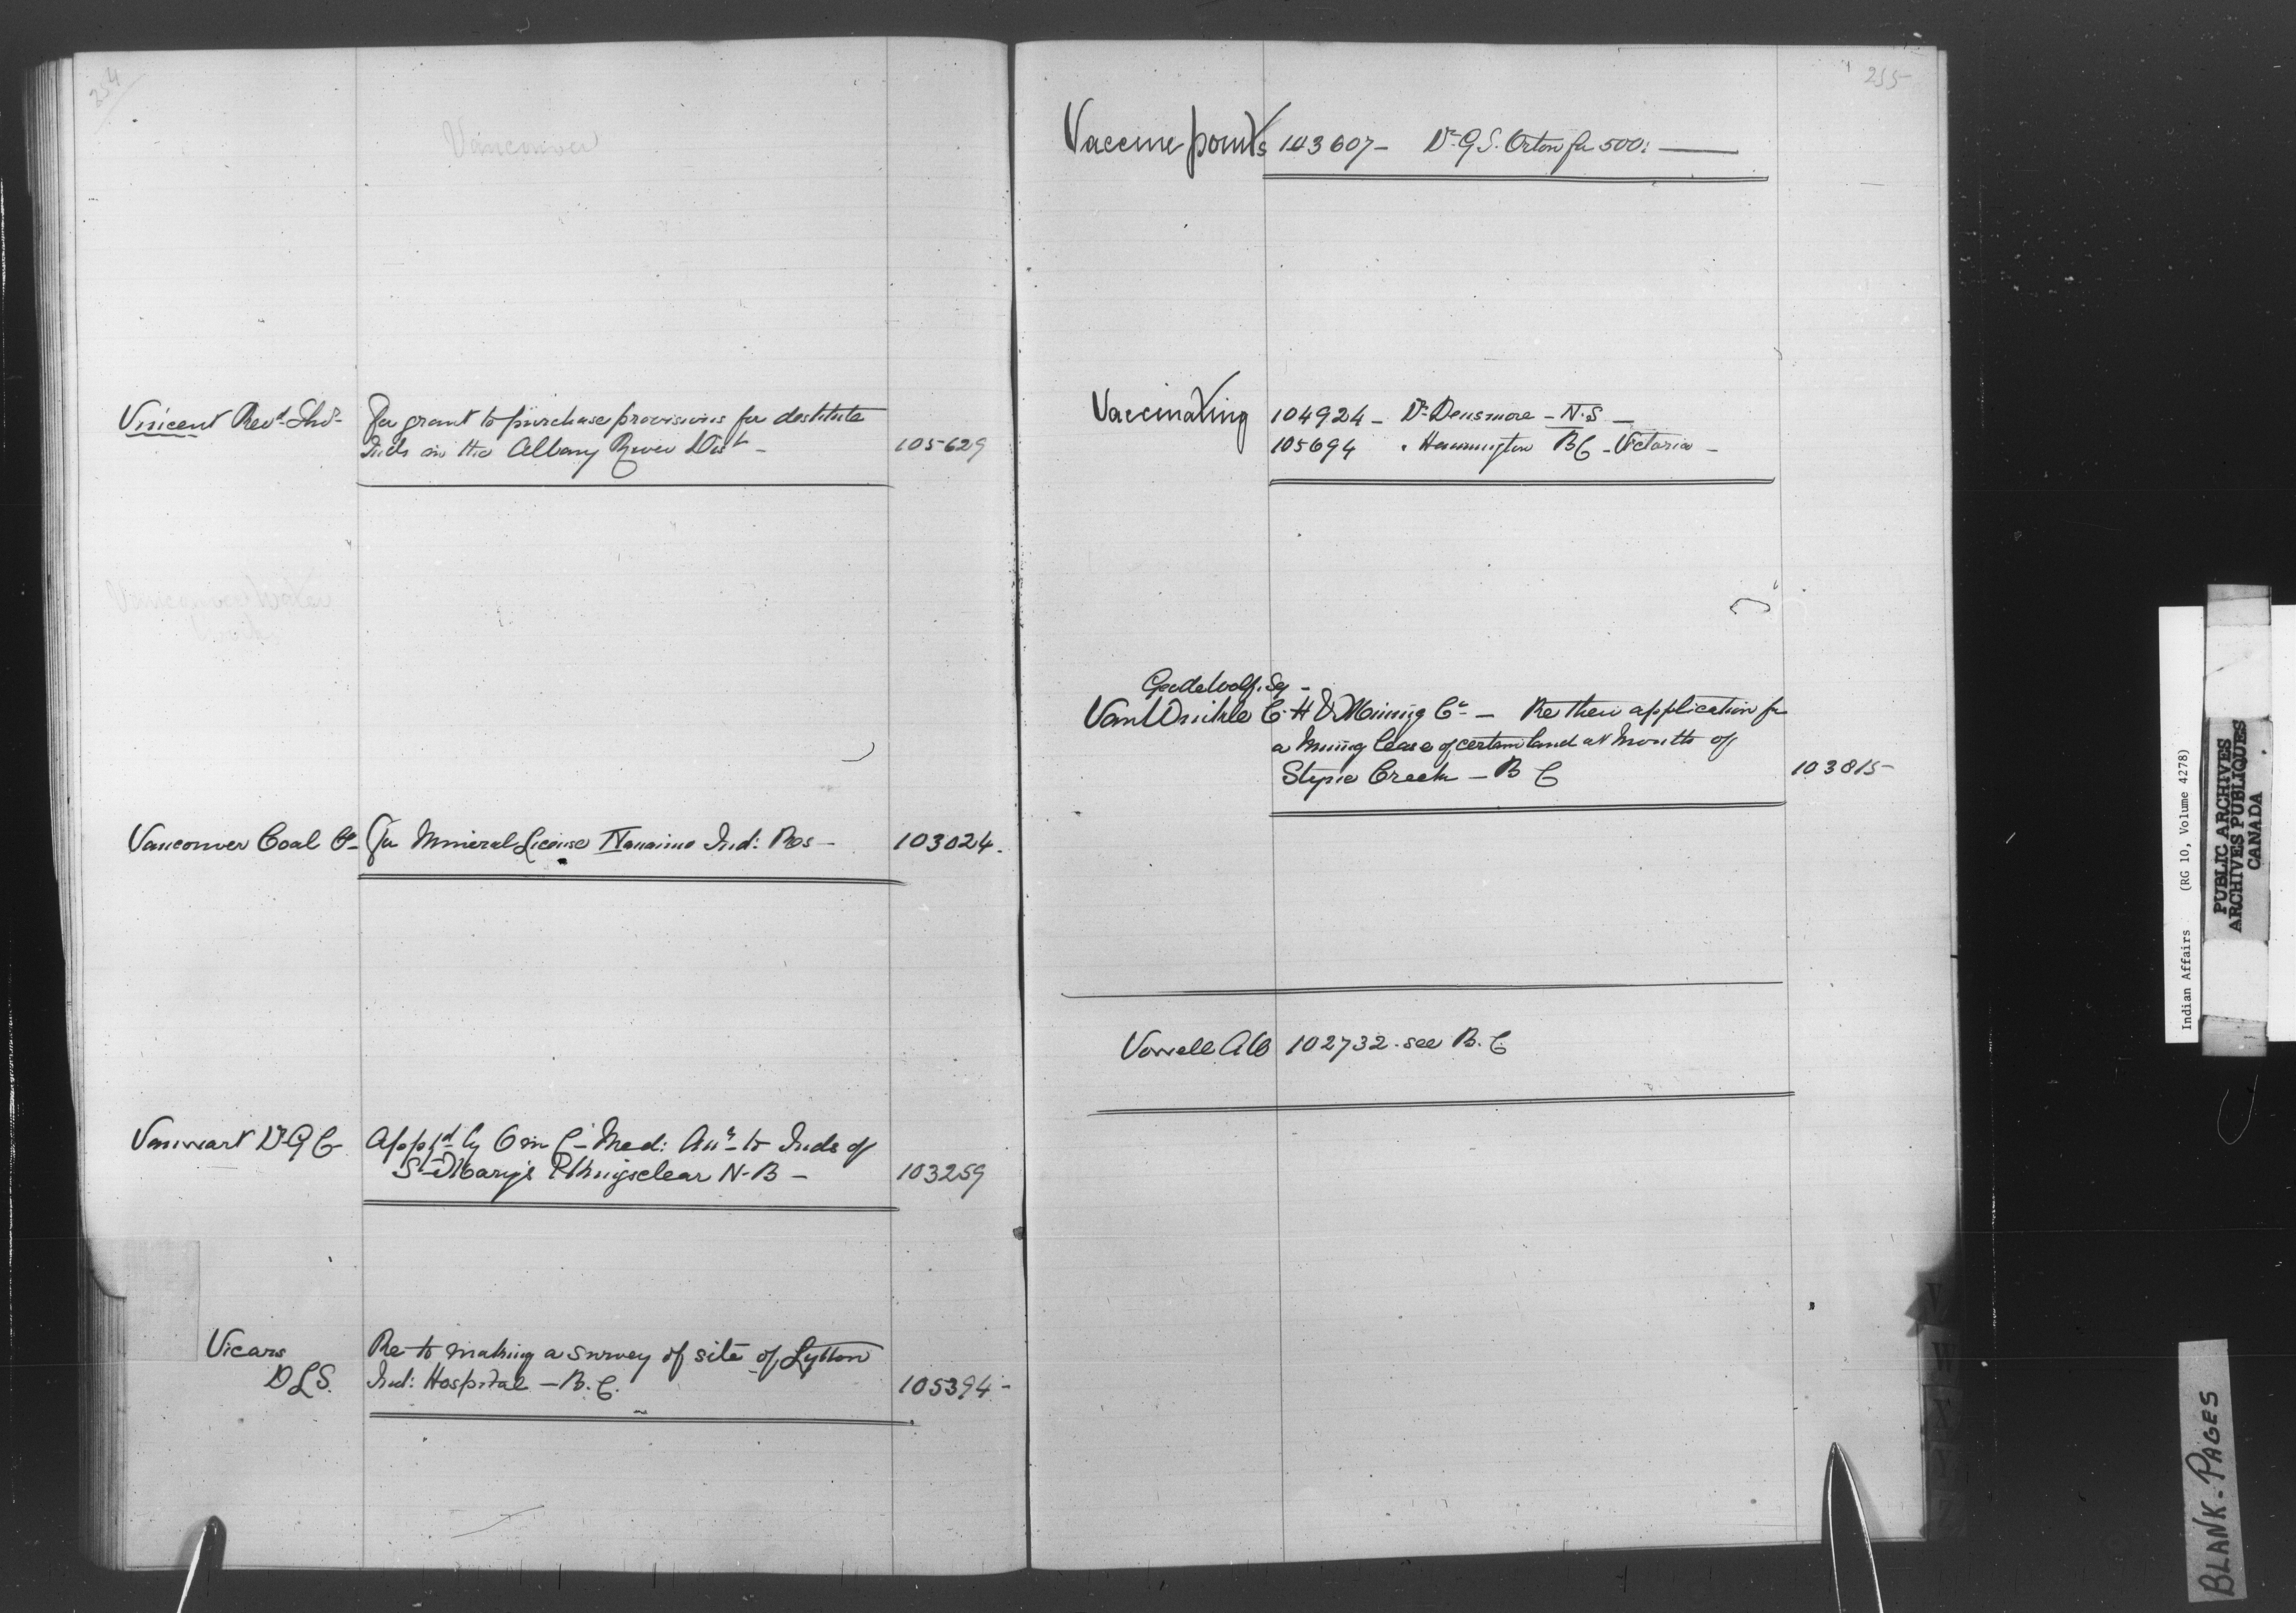 254
Vancouver
Vincent Revd. Thos.
For grant to purchase provisions for destitute
Inds in the Albany River Dist - 105629
Vancouver Water
Works
Vancouver Coal Co. For Mineral License Nanaimo Ind: Res - 103024.
Vanwart Dr G C Appt'd by O in C - Med: Att. to Inds of
St Mary's & Kingsclear N.B - 103259
Vicars Re to making a survey of site of Lytton
D L S. Ind: Hospital - B.C. 105394 -
255
Vaccine points 103607 - Dr. G. S. Orton for 500:
Vaccinating 104924 - Dr. Densmore - N.S -
105694 " Hannington B C - Victoria -
VanWinkle C. H & Mining Co. - Re their application for
a mining lease of certain land at mouth of
Creek - B C 103815 -
Vowell A W 102732 . see B.C.
Indian Affairs (RG 10, Volume 4278)
PUBLIC ARCHIVES
ARCHIVES PUBLIQUES
CANADA
V
W
X
Y
Z
BLANK-PAGES